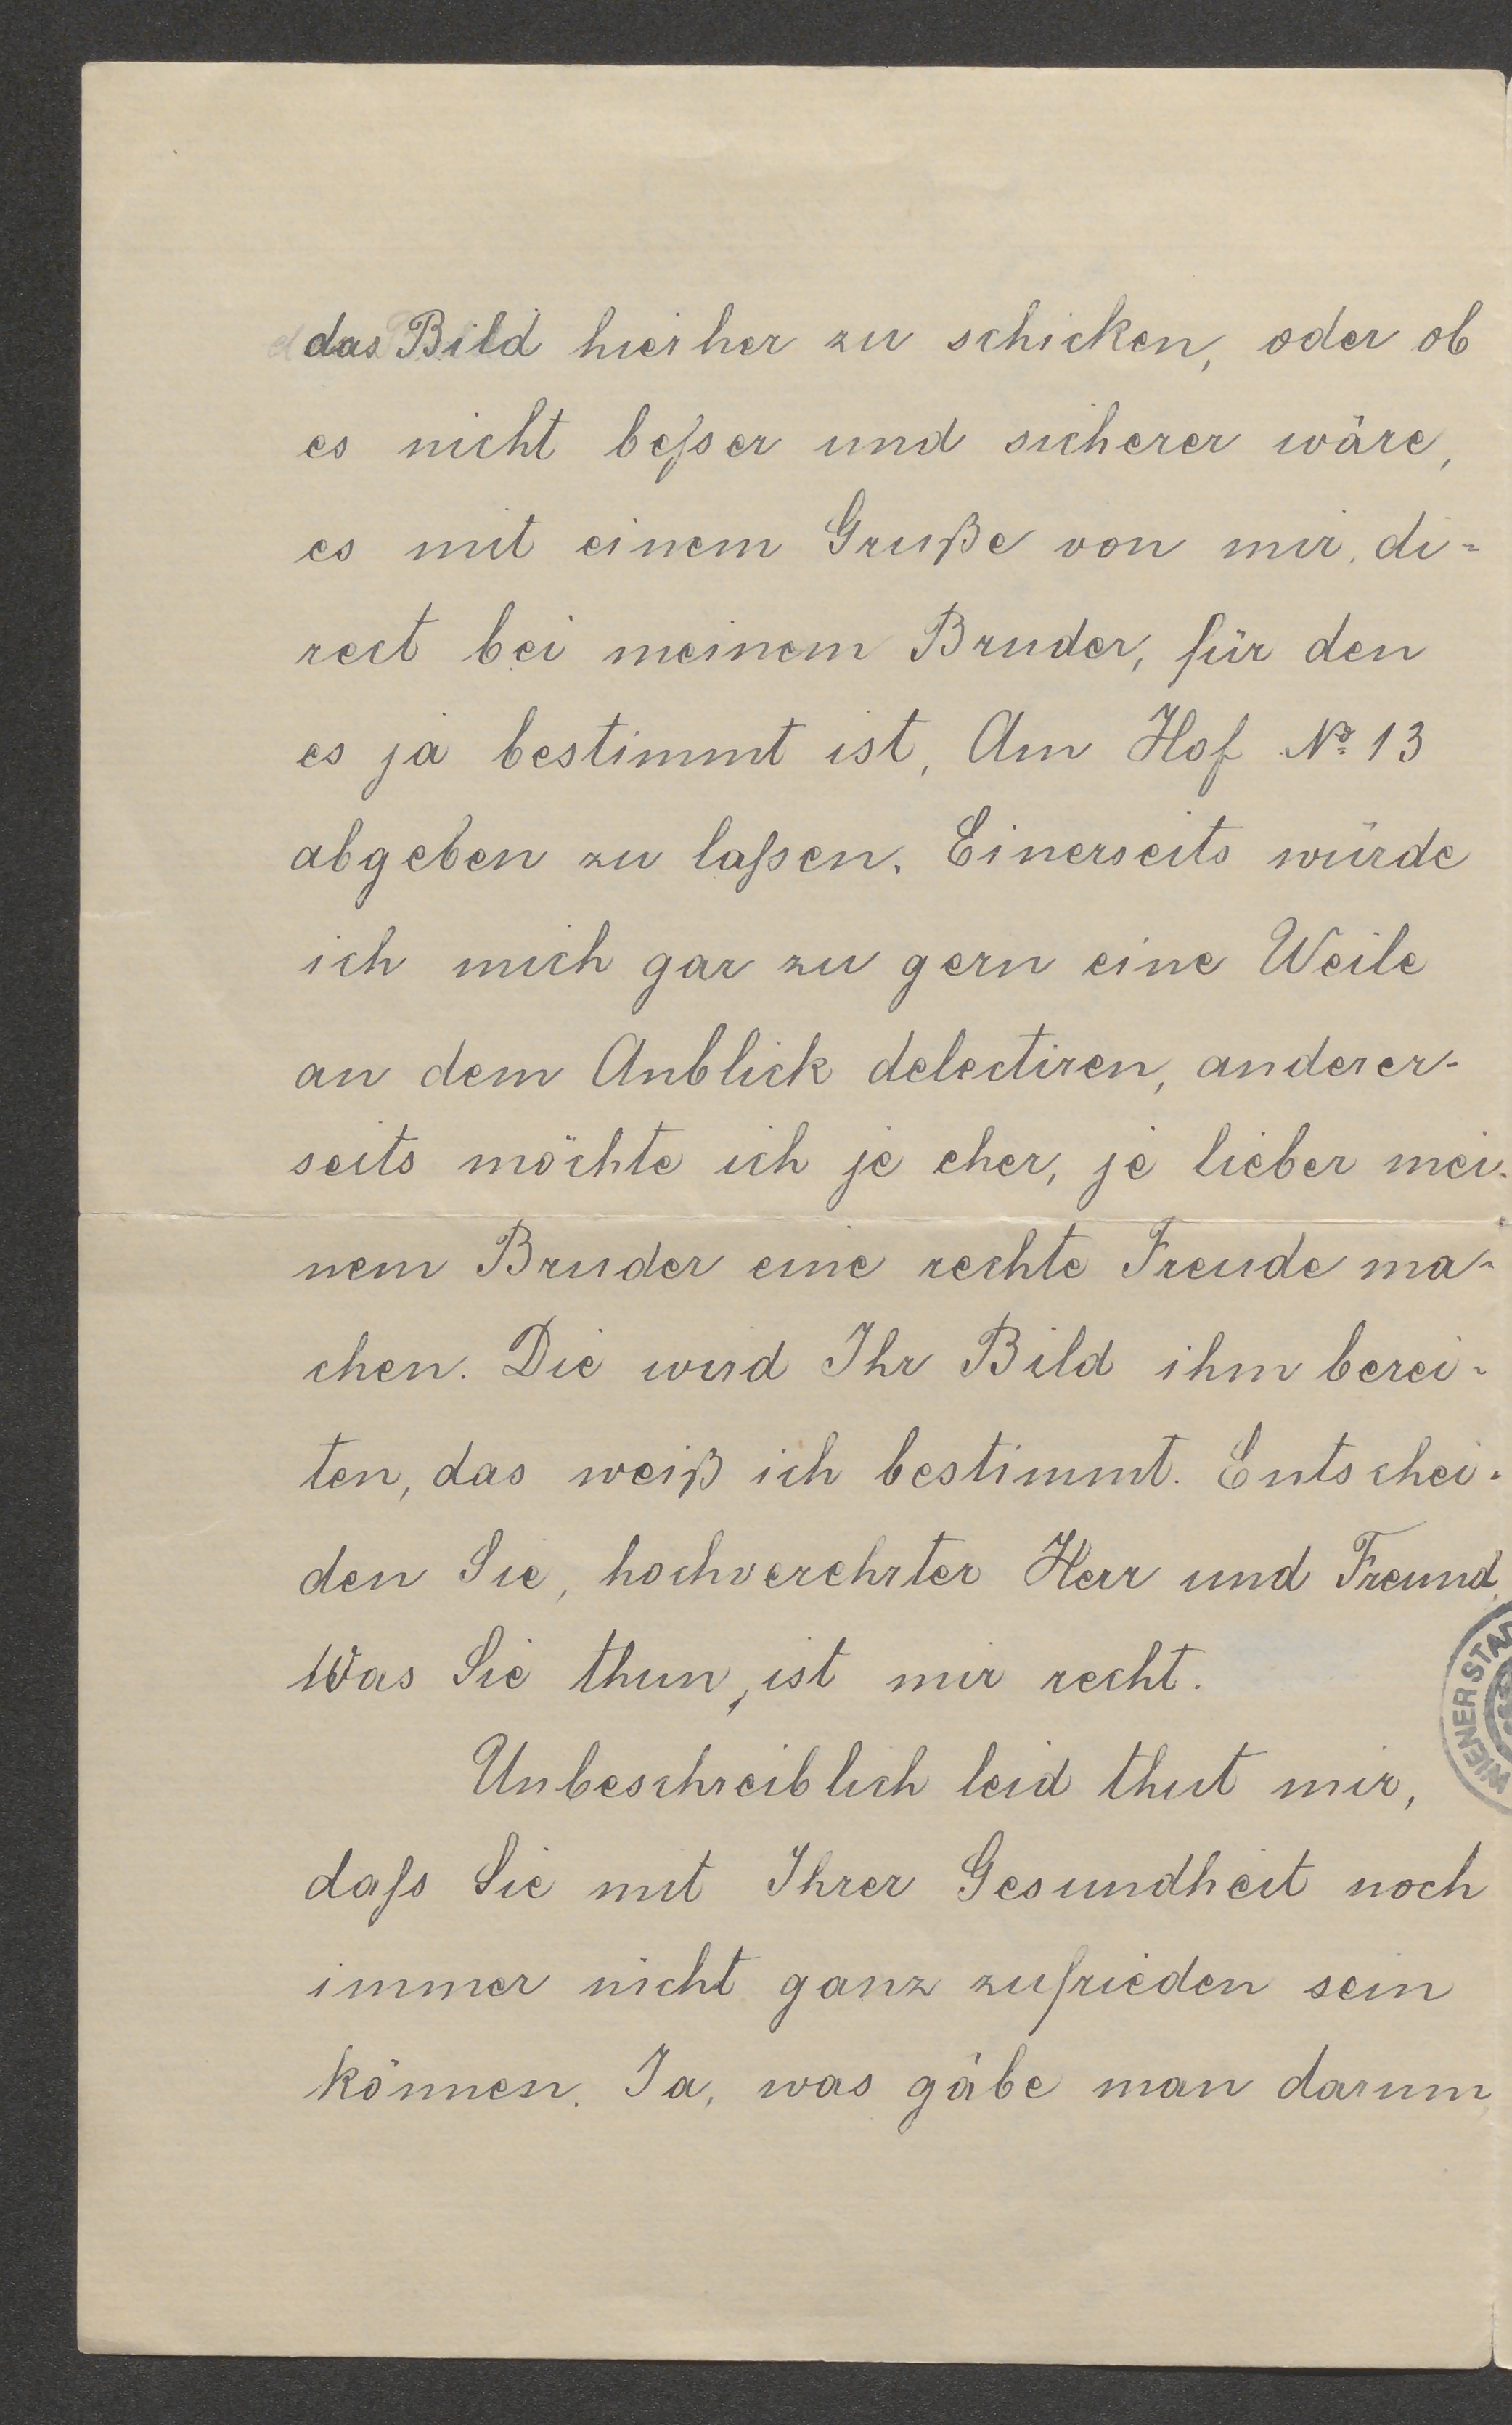 das Bild hierher zu schicken, oder ob
es nicht beſser und sicherer wäre,
es mit einem Gruße von mir, di=
rect bei meinem Bruder, für den
es ja bestimmt ist, Am Hof № 13
abgeben zu laſsen. Einerseits würde
ich mich gar zu gern eine Weile
an dem Anblick delectiren, anderer-
seits möchte ich je eher, je lieber mei-
nem Bruder eine rechte Freude ma-
chen. Die wird Ihr Bild ihm berei-
ten, das weiß ich bestimmt. Entschei-
den Sie, hochverehrter Herr und Freund,
Was Sie thun, ist mir recht.
Unbeschreiblich leid thut mir,
daſs Sie mit Ihrer Gesundheit noch
immer nicht ganz zufrieden sein
können. Ja, was gäbe man darum
WIENER STAD